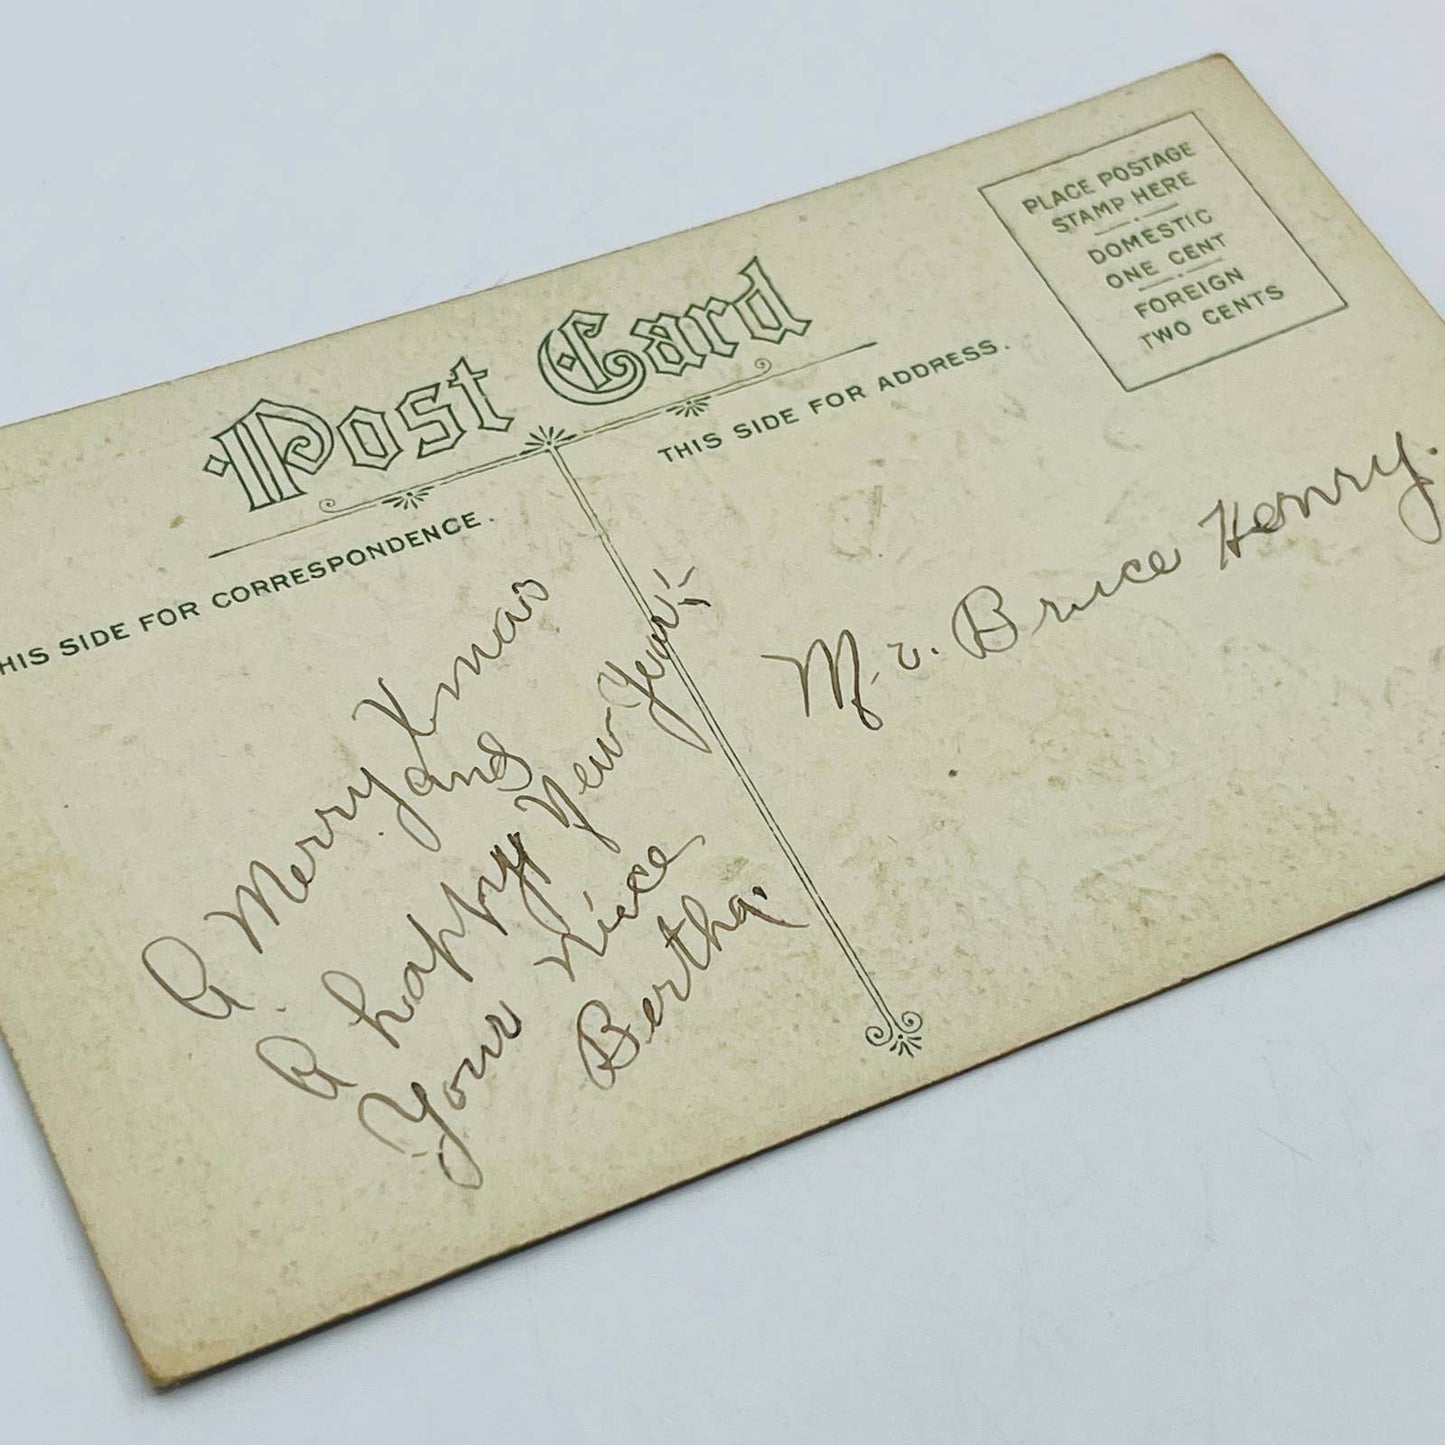 Post Card
THIS SIDE FOR CORRESPONDENCE.
THIS SIDE FOR ADDRESS.
PLACE POSTAGE
STAMP HERE
DOMESTIC
ONE CENT
FOREIGN
TWO CENTS
A Merry Xmas
and
A happy New Year
Your Niece
Bertha.
Mr. Bruce Henry.